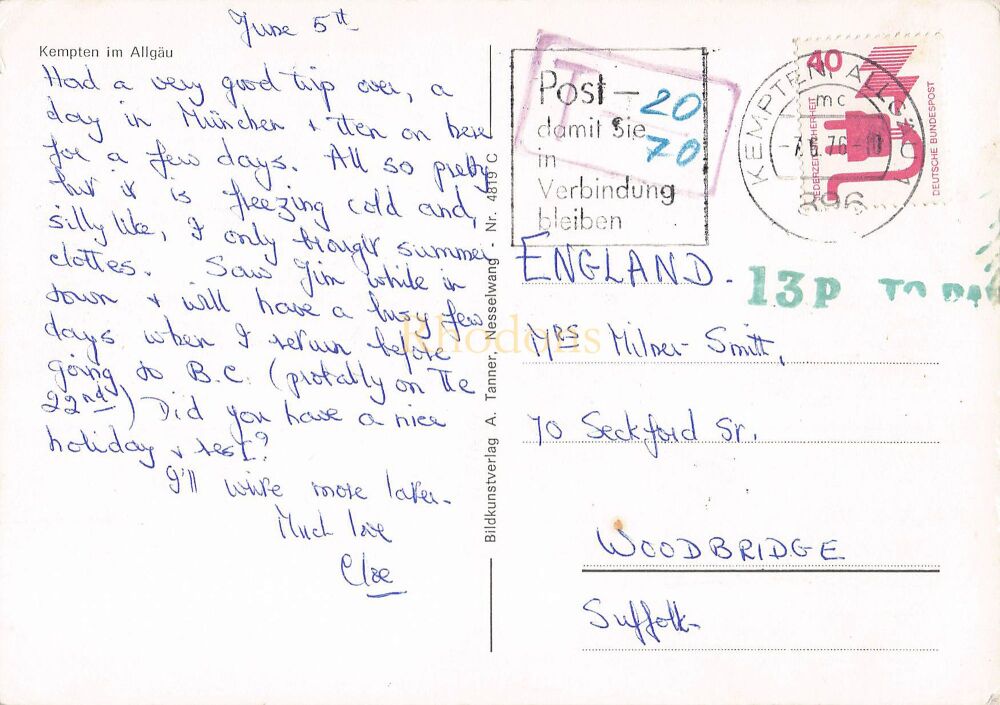 June 5th
Kempten im Allgäu
Had a very good trip over, a
day in München + then on here
for a few days. All so pretty
but it is freezing cold and,
silly like, I only brought summer
clothes. Saw Jim while in
town + will have a busy few
days when I return before
going to B.C. (probably on the
22nd) Did you have a nice
holiday + rest?
I'll write more later.
Much love
Cloe
Bildkunstverlag A. Tanner, Nesselwang - Nr. 4819 C
Post-
damit Sie
in
Verbindung
bleiben
T
20
70
KEMPTEN, ALLGÄU 1
mc
-7.6.76-
896
40
JEDERZEIT SICHERHEIT
DEUTSCHE BUNDESPOST
ENGLAND.
13P TO PAY
Rhodons
Mrs Milner-Smith,
70 Seckford St.
WOODBRIDGE
Suffolk